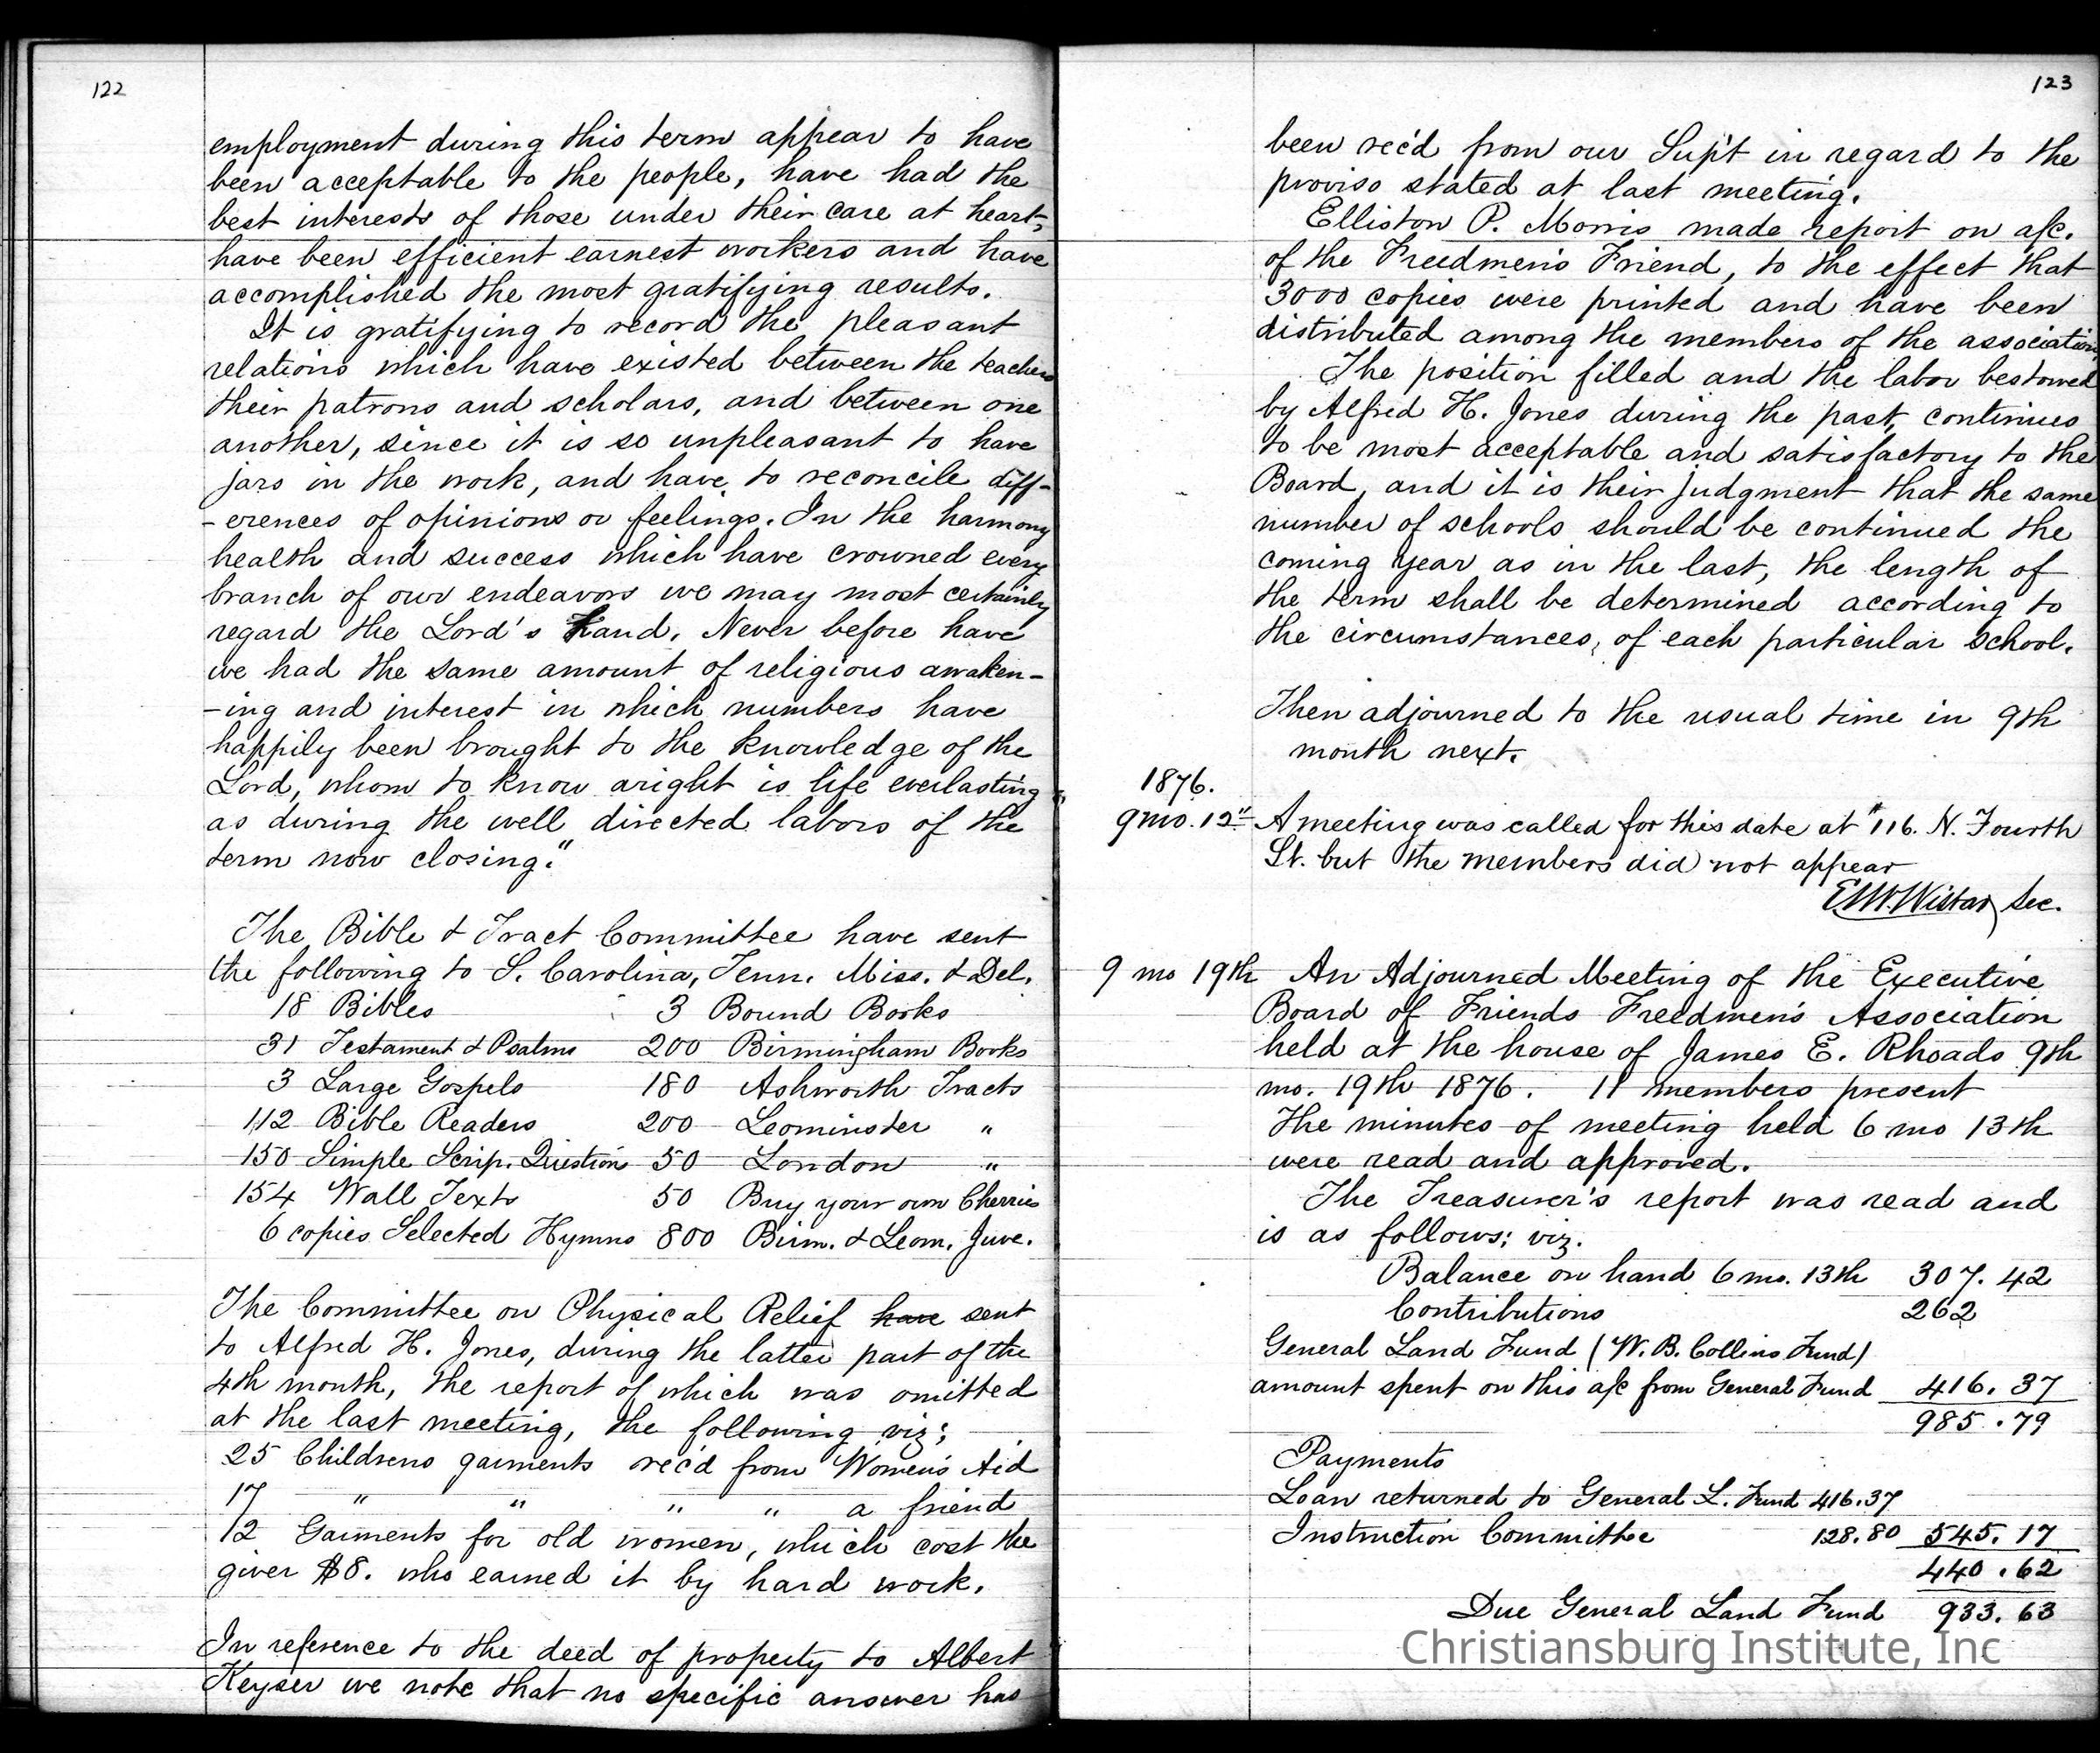 122
employment during this term appear to have
been acceptable to the people, have had the
best interests of those under their care at heart,
have been efficient earnest workers and have
accomplished the most gratifying results.
It is gratifying to record the pleasant
relations which have existed between the teachers
their patrons and scholars, and between one
another, since it is so unpleasant to have
jars in the work, and have to reconcile diff-
-erences of opinions or feelings. In the harmony
health and success which have crowned every
branch of our endeavors we may most certainly
regard the Lord's hand. Never before have
we had the same amount of religious awaken-
-ing and interest in which numbers have
happily been brought to the knowledge of the
Lord, whom to know aright is life everlasting
as during the well directed labors of the
term now closing."
The Bible & Tract Committee have sent
the following to S. Carolina, Tenn. Miss. & Del.
18 Bibles 3 Bound Books
31 Testament & Psalms 200 Birmingham Books
3 Large Gospels 180 Ashworth Tracts
112 Bible Readers 200 Leominster "
150 Simple Scrip. Question 50 London "
154 Wall Texts 50 Buy your own Cherries
6 copies Selected Hymns 800 Birm. & Leom. Juve.
The Committee on Physical Relief have sent
to Alfred H. Jones, during the latter part of the
4th month, the report of which was omitted
at the last meeting, the following viz;
25 Childrens garments rec'd from Women's Aid
17 " " " " a friend
12 Garments for old women, which cost the
giver $8. who earned it by hard work.
In reference to the deed of property to Albert
Keyser we note that no specific answer has
123
been rec'd from our Sup't in regard to the
proviso stated at last meeting.
Elliston P. Morris made report on a/c.
of the Freedmen's Friend, to the effect that
3000 copies were printed and have been
distributed among the members of the association
The position filled and the labor bestowed
by Alfred H. Jones during the past, continues
to be most acceptable and satisfactory to the
Board, and it is their judgment that the same
number of schools should be continued the
coming year as in the last, the length of
the term shall be determined according to
the circumstances, of each particular school.
Then adjourned to the usual time in 9th
month next.
1876.
9 mo. 12" A meeting was called for this date at #116. N. Fourth
St. but the members did not appear
E.W. Wistar, Sec.
9 mo 19th An Adjourned Meeting of the Executive
Board of Friends Freedmen's Association
held at the house of James E. Rhoads 9th
mo. 19th 1876. 11 members present
The minutes of meeting held 6 mo 13th
were read and approved.
The Treasurer's report was read and
is as follows; viz.
Balance on hand 6 mo. 13th 307.42
Contributions 262
General Land Fund (W. B. Collins Fund)
amount spent on this a/c from General Fund 416.37
985.79
Payments
Loan returned to General L. Fund 416.37
Instruction Committee 128.80 545.17
440.62
Due General Land Fund 933.63
Christiansburg Institute, Inc